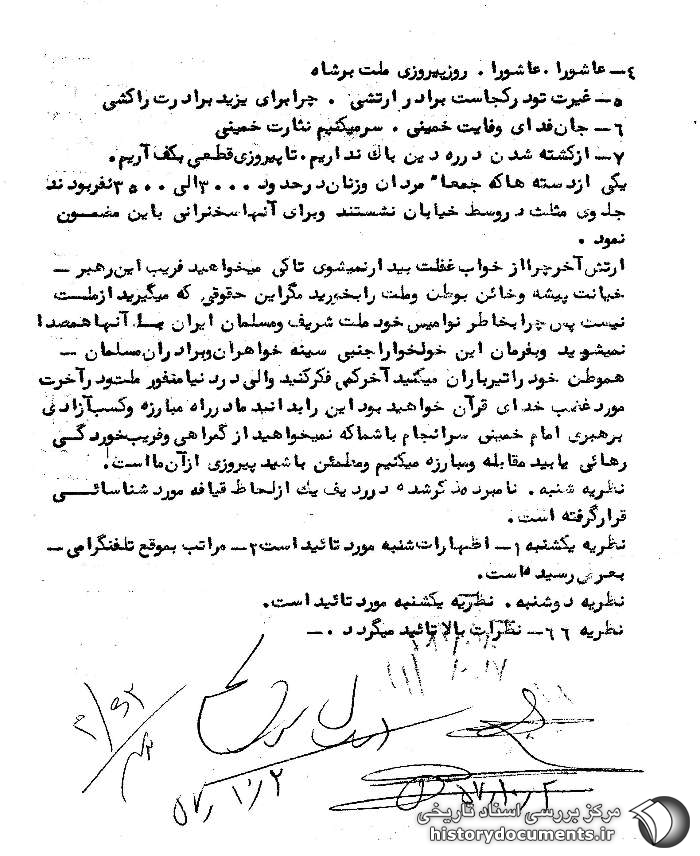 ۴ـ عاشورا . عاشورا . روزپیروزی ملت برشاه
۵ـ غیرت تود رکجاست براد ر ارتشی . چرابرای یزید براد رت راکشی
۶ـ جان فدای وفایت خمینی . سرمیکنیم نثارت خمینی
۷ـ ازکشته شدن د رره دین باك ند اریم . تاپیروزی قطعی بکف آریم .
یکی ازد سته هاکه جمعا" مرد ان وزنان د رحد ود ۳۰۰۰ الی ۳۵۰۰ نفربود ند
جلوی مثلث د روسط خیابان نشستند وبرای آنهاسخنرانی باین مضمون
نمود .
ارتش آخرچرااز خواب غفلت بید ارنمیشوی تاکی میخواهید فریب این رهبر ـ
خیانت پیشه وخائن بوطن وملت رابخورید مگراین حقوقی که میگیرید ازملت
نیست پس چرابخاطر نوامیس خود ملت شریف ومسلمان ایران با آنهاهمصدا
نمیشوید وبفرمان این خولخواراجنبی سینه خواهران وبراد ران مسلمان ـ
هموطن خود راتیرباران میکنید آخرکمی فکرکنید والی د رد نیامنفور ملت ود رآخرت
مورد غضب خد ای قرآن خواهید بود این راید انید ماد رراه مبارزه وکسب آزاد ی
برهبری امام خمینی سرانجام باشماکه نمیخواهید از گمراهی وفریب خورد گی
رهائی یابید مقابله ومبارزه میکنیم ومطمئن باشید پیروزی ازآن مااست .
نظریه شنبه . نامبرد ه د رد یف یك ازلحاظ قیافه مورد شناسائی
قرارگرفته است .
نظریه یکشنبه ۱ـ اظهارات شنبه مورد تائید است ۲ـ مراتب بموقع تلفنگرامی ـ
بعرض رسید ه است .
نظریه د وشنبه . نظریه یکشنبه مورد تائید است .
نظریه ۶۶ ـ نظرات بالا تائید میگرد د . ـ
۵۷٫۱۰٫۲
۵۷٫۱۰٫۲
مرکز بررسی اسناد تاریخی
historydocuments.ir